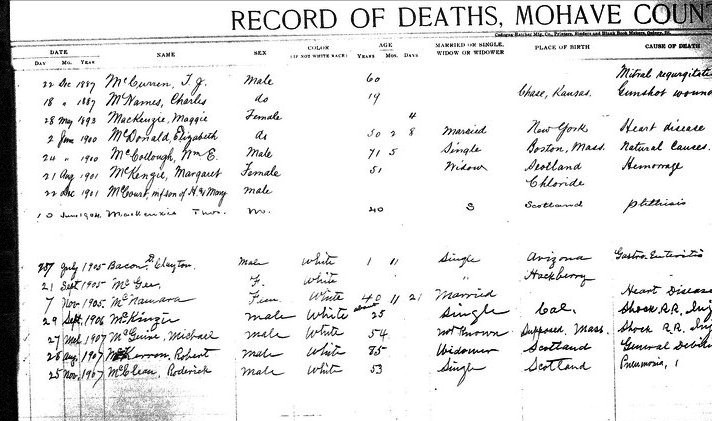 RECORD OF DEATHS, MOHAVE COUNT
DATE NAME SEX COLOR AGE MARRIED OR SINGLE, PLACE OF BIRTH CAUSE OF DEATH
DAY MO. YEAR (IF NOT WHITE RACE) YEARS MOS. DAYS WIDOW OR WIDOWER
22 Dec 1887 McCurren, T. J. Male 60 Mitral regurgitati
18 " 1887 McNames, Charles do 19 Chase, Kansas. Gunshot woun
28 May 1893 MacKenzie, Maggie Female 4
2 June 1900 McDonald, Elizabeth do 50 2 8 Married New York Heart disease
24 " 1900 McCollough, Wm E. Male 71 5 Single Boston, Mass. Natural Causes.
21 Aug 1901 McKenzie, Margaret Female 51 Widow Scotland Hemorrage
22 Dec 1901 McCourt, inf son of H & Mary male Chloride
10 June 1904 MacKenzie Thos. M. 40 S Scotland Phthisis
July 1905 Bacon, Clayton male White 1 11 Single Arizona Gastro Enteritis
21 Sept 1905 McGee, F. White " Hackberry
7 Nov. 1905 McNamara Fem White 40 11 21 Married Heart Disease
29 Sept. 1906 McKinzie male White about 25 Single Cal. Shock R.R. Inj
27 1907 McGuire, Michael male White 54 not Known Supposed, Mass. Shock R.R. Inj
26 Aug 1907 Robert male White 85 Widower Scotland General Debili
25 Nov. 1907 McClean, Roderick male White 53 Single Scotland Pneumonia,